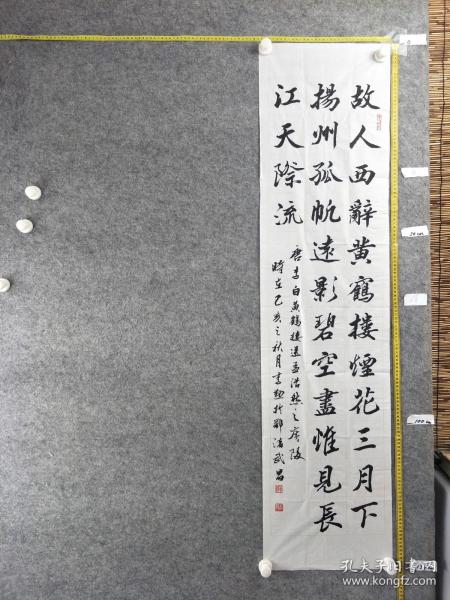 故人西辭黄鶴楼煙花三月下
揚州孤帆遠影碧空盡惟見長
江天際流
唐李白黄鶴楼送孟浩然之廣陵
時在己亥之秋月書
武昌
孔夫子旧书网
www.kongfz.com